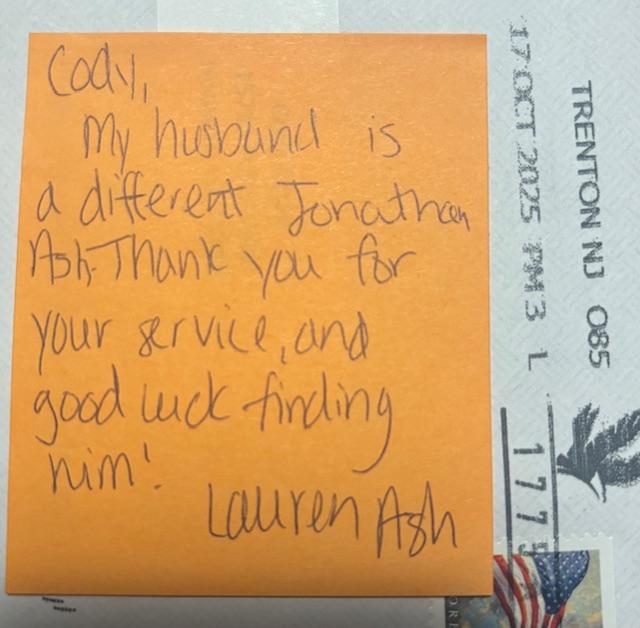 Cody,
My husband is
a different Jonathan
Ash. Thank you for
your service, and
good luck finding
him!
Lauren Ash
TRENTON NJ 085
17 OCT 2025 PM 3 L
1775